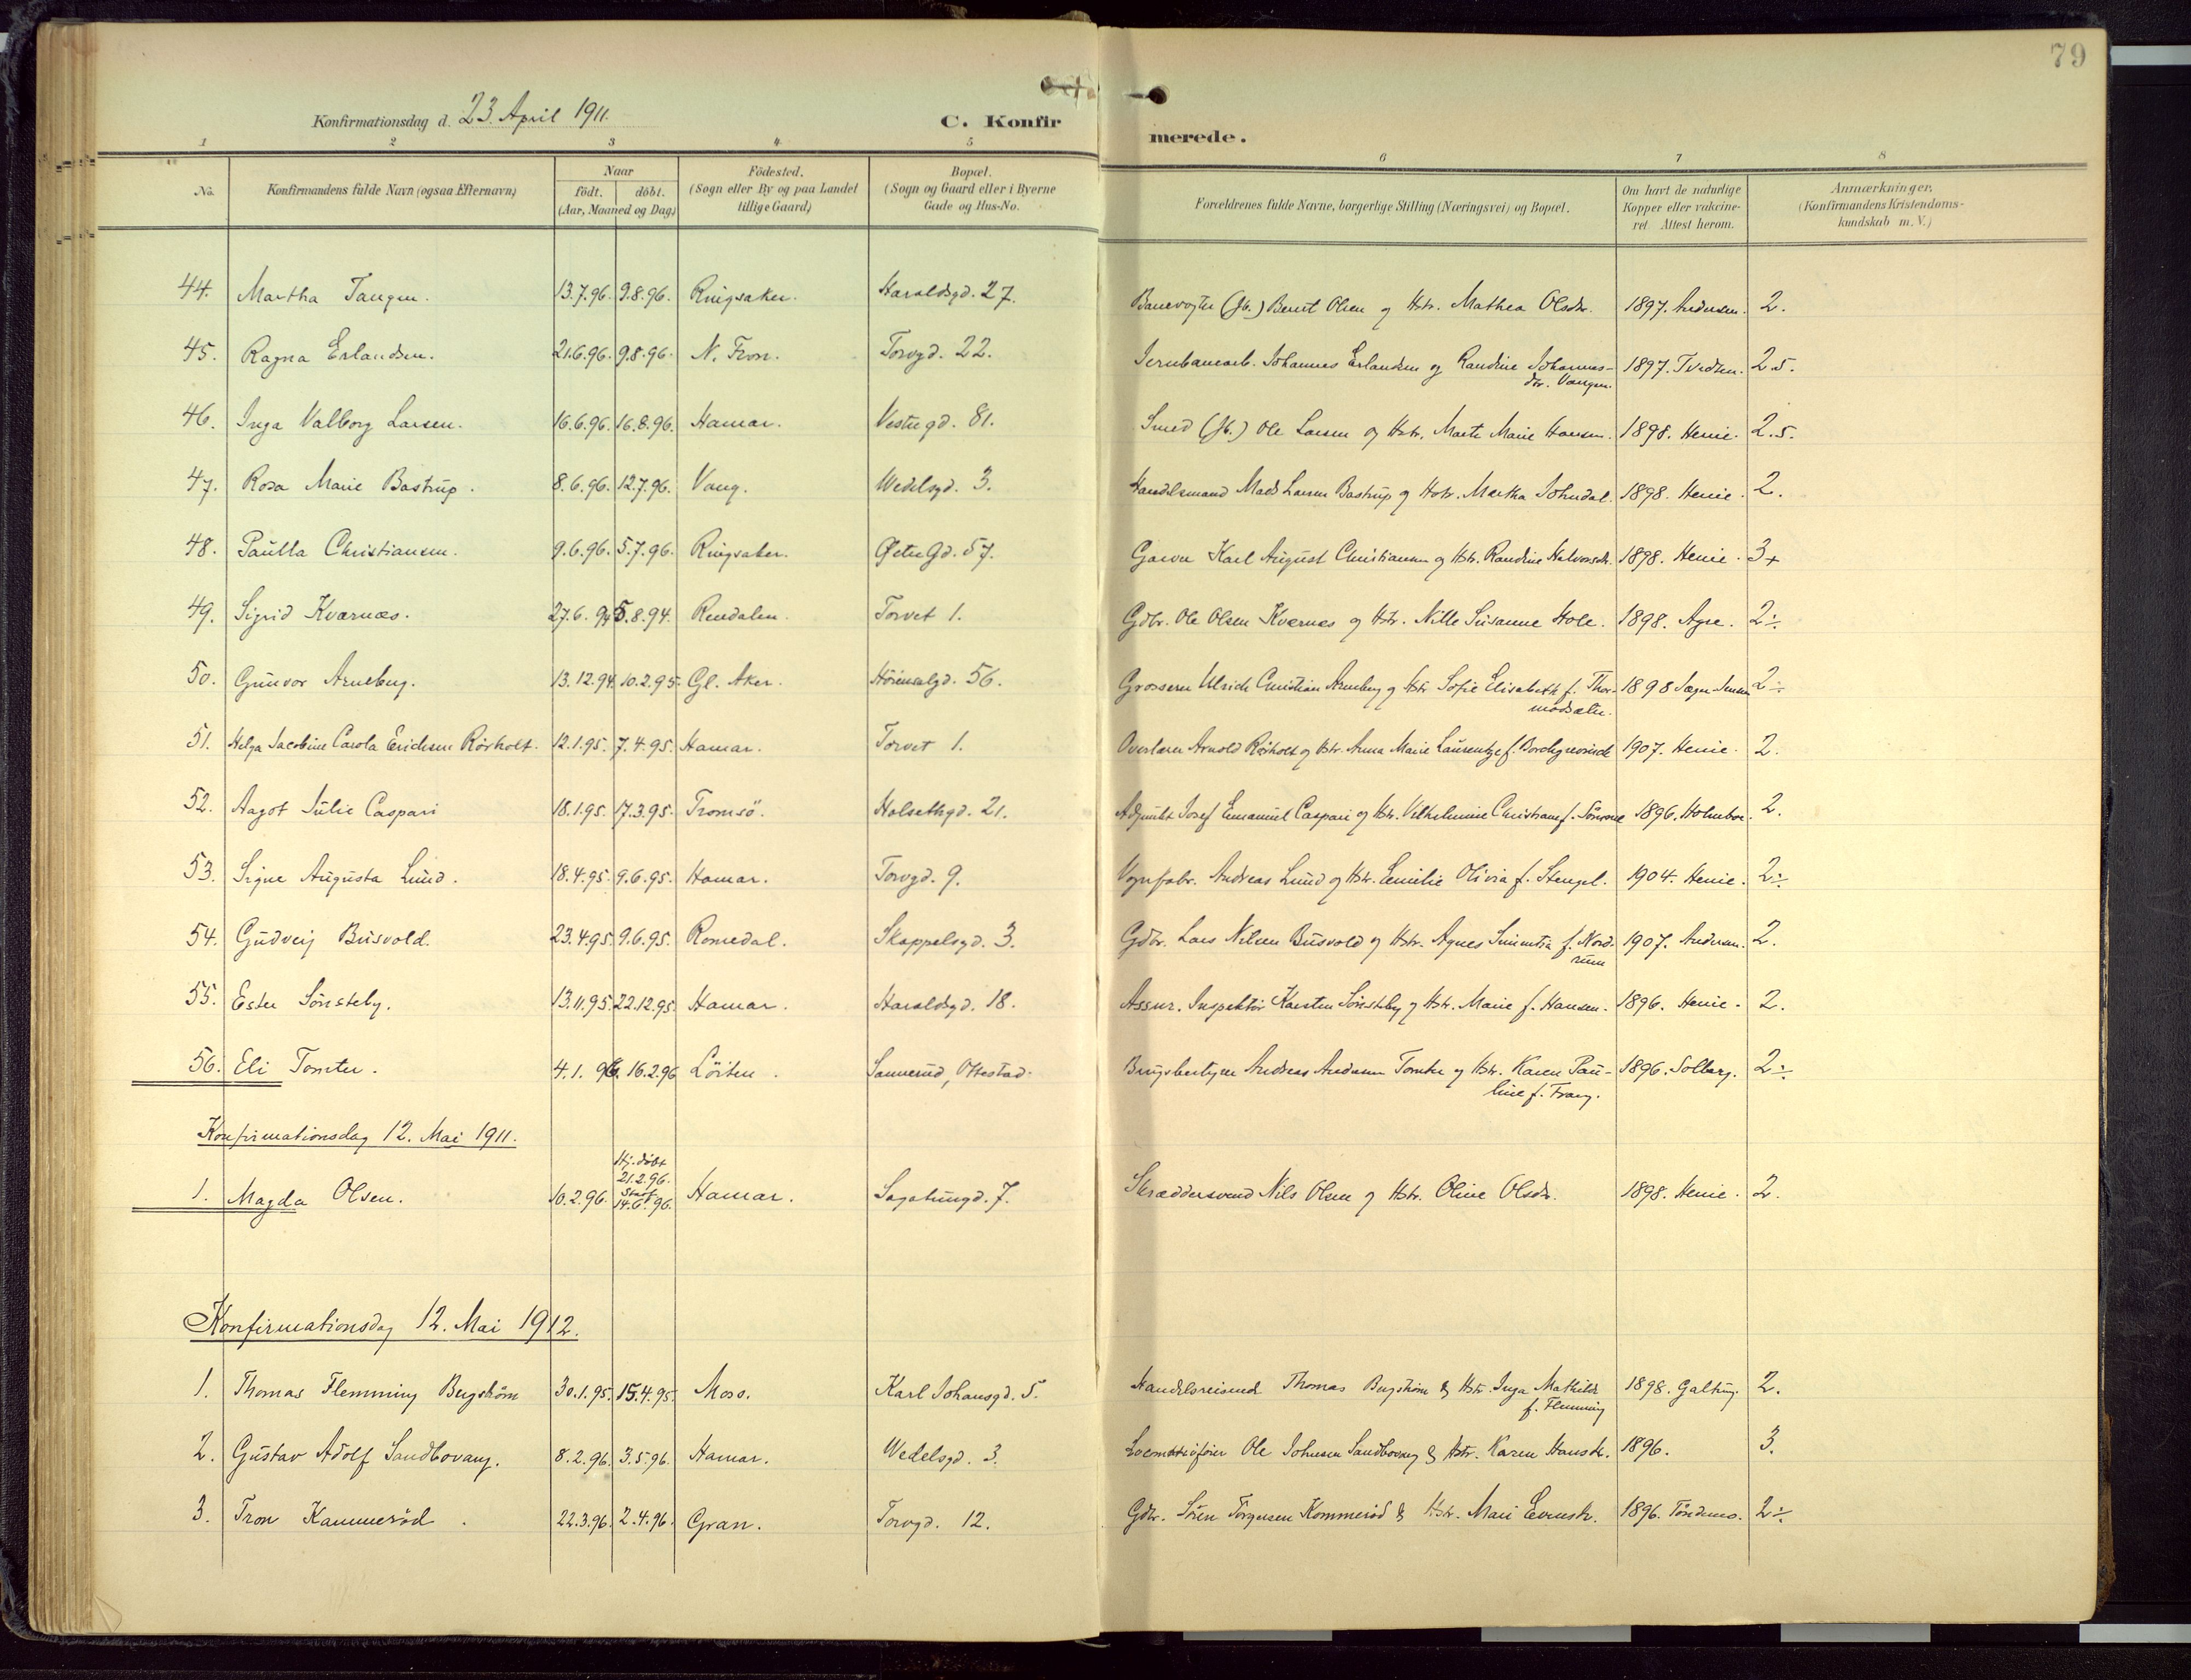 79
Konfirmationsdag d. 23. April 1911.
C. Konfirmerede.
1 2 3 4 5 6 7 8
No. Konfirmandens fulde Navn (ogsaa Efternavn) Naar födt. döbt. (Aar, Maaned og Dag.) Födested. (Sogn eller By og paa Landet tillige Gaard) Bopæl. (Sogn og Gaard eller i Byerne Gade og Hus-No. Forældrenes fulde Navne, borgerlige Stilling (Næringsvei) og Bopæl. Om havt de naturlige Kopper eller vakcineret. Attest herom. Anmærkninger. (Konfirmandens Kristendomskundskab m. V.)
44. Martha Tangen. 13.7.96. 9.8.96. Ringsaker. Haraldsgd. 27. Banevogter (Jb.) Bernt Olsen og Hstr. Mathea Olsdtr. 1897. Andersen. 2.
45. Ragna Erlandsen. 21.6.96. 9.8.96. N. Fron. Torvgd. 22. Jernbanearb. Johannes Erlandsen og Randine Johannes-
dtr. Vangen. 1897. Tvedten. 2.5.
46. Inga Valborg Larsen. 16.6.96. 16.8.96. Hamar. Vestregd. 81. Smed (Jb.) Ole Larsen og Hstr. Marte Marie Hansen. 1898. Henie. 2.5.
47. Rosa Marie Bastrup. 8.6.96. 12.7.96. Vang. Wedelsgd. 3. Handelsmand Mads Larsen Bastrup og Hstr. Martha Johndal. 1898. Henie. 2.
48. Paulla Christiansen. 9.6.96. 5.7.96. Ringsaker. Østre Gd. 57. Garver Karl August Christiansen og Hstr. Randine Halvorsdr. 1898. Henie. 3+
49. Sigrid Kværnæs. 27.6.94 5.8.94. Rendalen. Torvet 1. Gdbr. Ole Olsen Kværnæs og Hstr. Nille Susanne Hole. 1898. Agre. 2÷
50. Gunvor Arneberg. 13.12.94. 10.2.95. Gl. Aker. Hörensalgd. 56. Grosserer Ulrich Christian Arneberg og Hstr. Sofie Elisabeth f. Thor-
modsæter. 1898 2÷
51. Helga Jacobine Carola Erichsen Rörholt. 12.1.95. 7.4.95. Hamar. Torvet 1. Overlærer Arnold Rörholt og Hstr. Anna Marie Laurentze f. Borchgrevinck 1907. Henie. 2.
52. Aagot Julie Caspari 18.1.95. 17.3.95. Tromsö. Holsethgd. 21. Adjunkt Josef Emanuel Caspari og Hstr. Vilhelmine Christiane f. 1896. Holmboe. 2.
53. Signe Augusta Lund. 18.4.95. 9.6.95. Hamar. Torvgd. 9. Vognfabr. Andreas Lund og Hstr. Emilie Olivia f. Stengel. 1904. Henie. 2÷
54. Gudveig Busvold. 23.4.95. 9.6.95. Romedal. Skappelsgd. 3. Gdbr. Lars Nilsen Busvold og Hstr. Agnes f. Nord-
rum 1907. Andersen. 2.
55. Ester Sönsteby. 13.11.95. 22.12.95. Hamar. Haraldsgd. 18. Assur. Inspektör Karsten Sönsteby og Hstr. Marie f. Hansen. 1896. Henie. 2.
56. Eli Tomter. 4.1.96. 16.2.96 Löiten. Sannerud, Ottestad. Brugsbestyrer Andreas Andersen Tomter og Hstr. Karen Pau-
line f. Frang. 1896. Solberg. 2÷
Konfirmationsdag 12. Mai 1911.
1. Magda Olsen. 10.2.96. Hj. döbt 21.2.96. Stadf. 14.6.96. Hamar. Sagatungd. 7. Skræddersvend Nils Olsen og Hstr. Oline Olsdr. 1898. Henie. 2.
Konfirmationsdag 12. Mai 1912.
1. Thomas Flemming Bergström 30.1.95. 15.4.95. Moss. Karl Johansgd. 5. Handelsreisende Thomas Bergström & Hstr. Inga Mathilde
f. Flemming 1898. Galtung. 2.
2. Gustav Adolf Sandbovang. 8.2.96. 3.5.96. Hamar. Wedelsgd. 3. Locomotivförer Ole Johnsen Sandbovang & Hstr. Karen Hansdr. 1896. 3.
3. Tron Kammeröd. 22.3.96. 2.4.96. Gran. Torvgd. 12. Gdbr. Sören Jörgensen Kommeröd & Hstr. Mari Evensdr. 1896. Töndens. 2÷